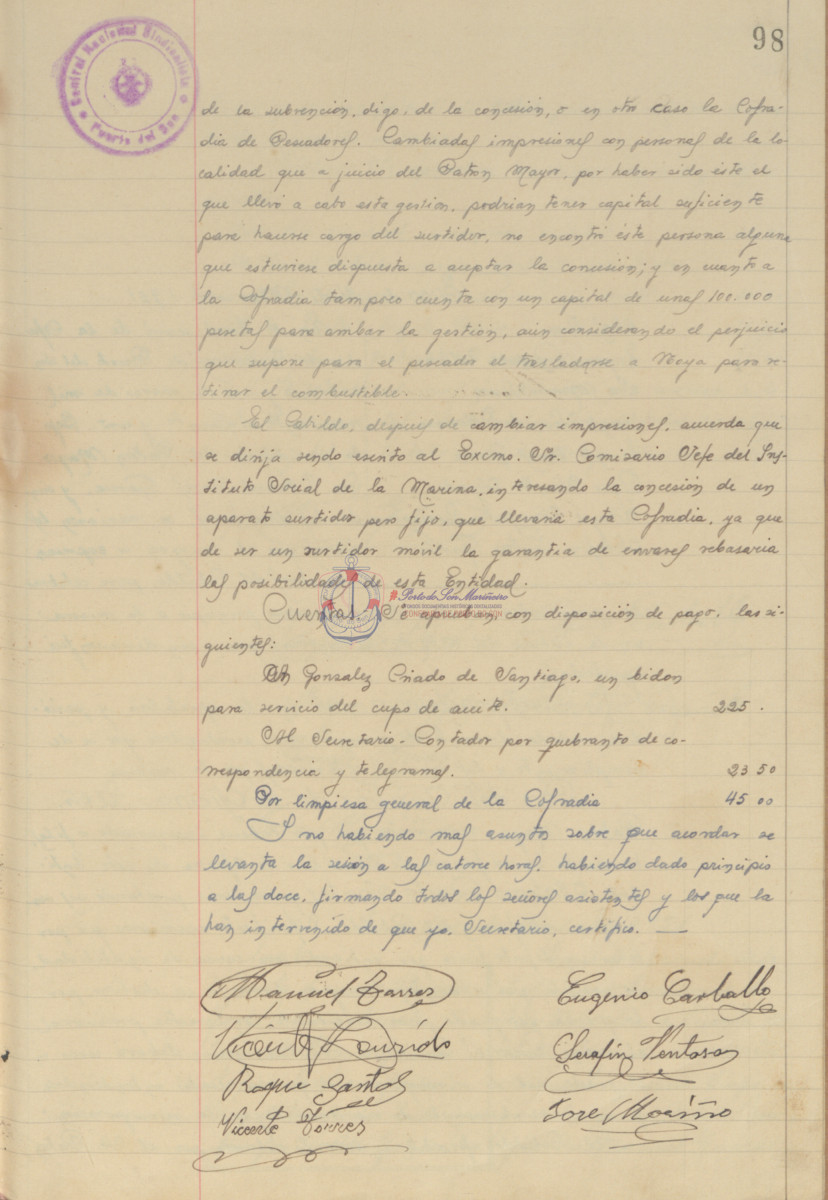 98
Central Nacional Sindicalista
Puerto del Son
de la subvención, digo, de la concesión, o en otro caso la Cofra-
dia de Pescadores. Cambiadas impresiones con personas de la lo-
calidad que a juicio del Patron Mayor, por haber sido este el
que llevó a cabo esta gestión, podrian tener capital suficiente
para hacerse cargo del surtidor, no encontró este persona alguna
que estuviese dispuesta a aceptar la concesión; y en cuanto a
la Cofradia tampoco cuenta con un capital de unas 100.000
pesetas para arribar la gestión, aún considerando el perjuicio
que supone para el pescador el trasladarse a Noya para re-
tirar el combustible.
El Cabildo, después de cambiar impresiones, acuerda que
se dirija sendo escrito al Excmo. Sr. Comisario Jefe del Ins-
tituto Social de la Marina, interesando la concesión de un
aparato surtidor pero fijo, que llevaria esta Cofradia, ya que
de ser un surtidor móvil la garantia de envases rebasaria
las posibilidades de esta Entidad.
Cuentas.- Se aprueban con disposición de pago, las si-
guientes:
A Gonzalez Criado de Santiago, un bidon
para servicio del cupo de aceite. 225.
Al Secretario-Contador por quebranto de co-
rrespondencia y telegramas. 23 50
Por limpiesa general de la Cofradia 45 00
Y no habiendo mas asuntos sobre que acordar se
levanta la sesión a las catorce horas, habiendo dado principio
a las doce, firmando todos los señores asistentes y los que la
han intervenido de que yo, Secretario, certifico. —
Manuel Torres Eugenio Carballo
Vicente Lourido Serafin Ventosa
Roque Santos
Vicente Torres Jose Mariño
Porto do Son Mariñeiro